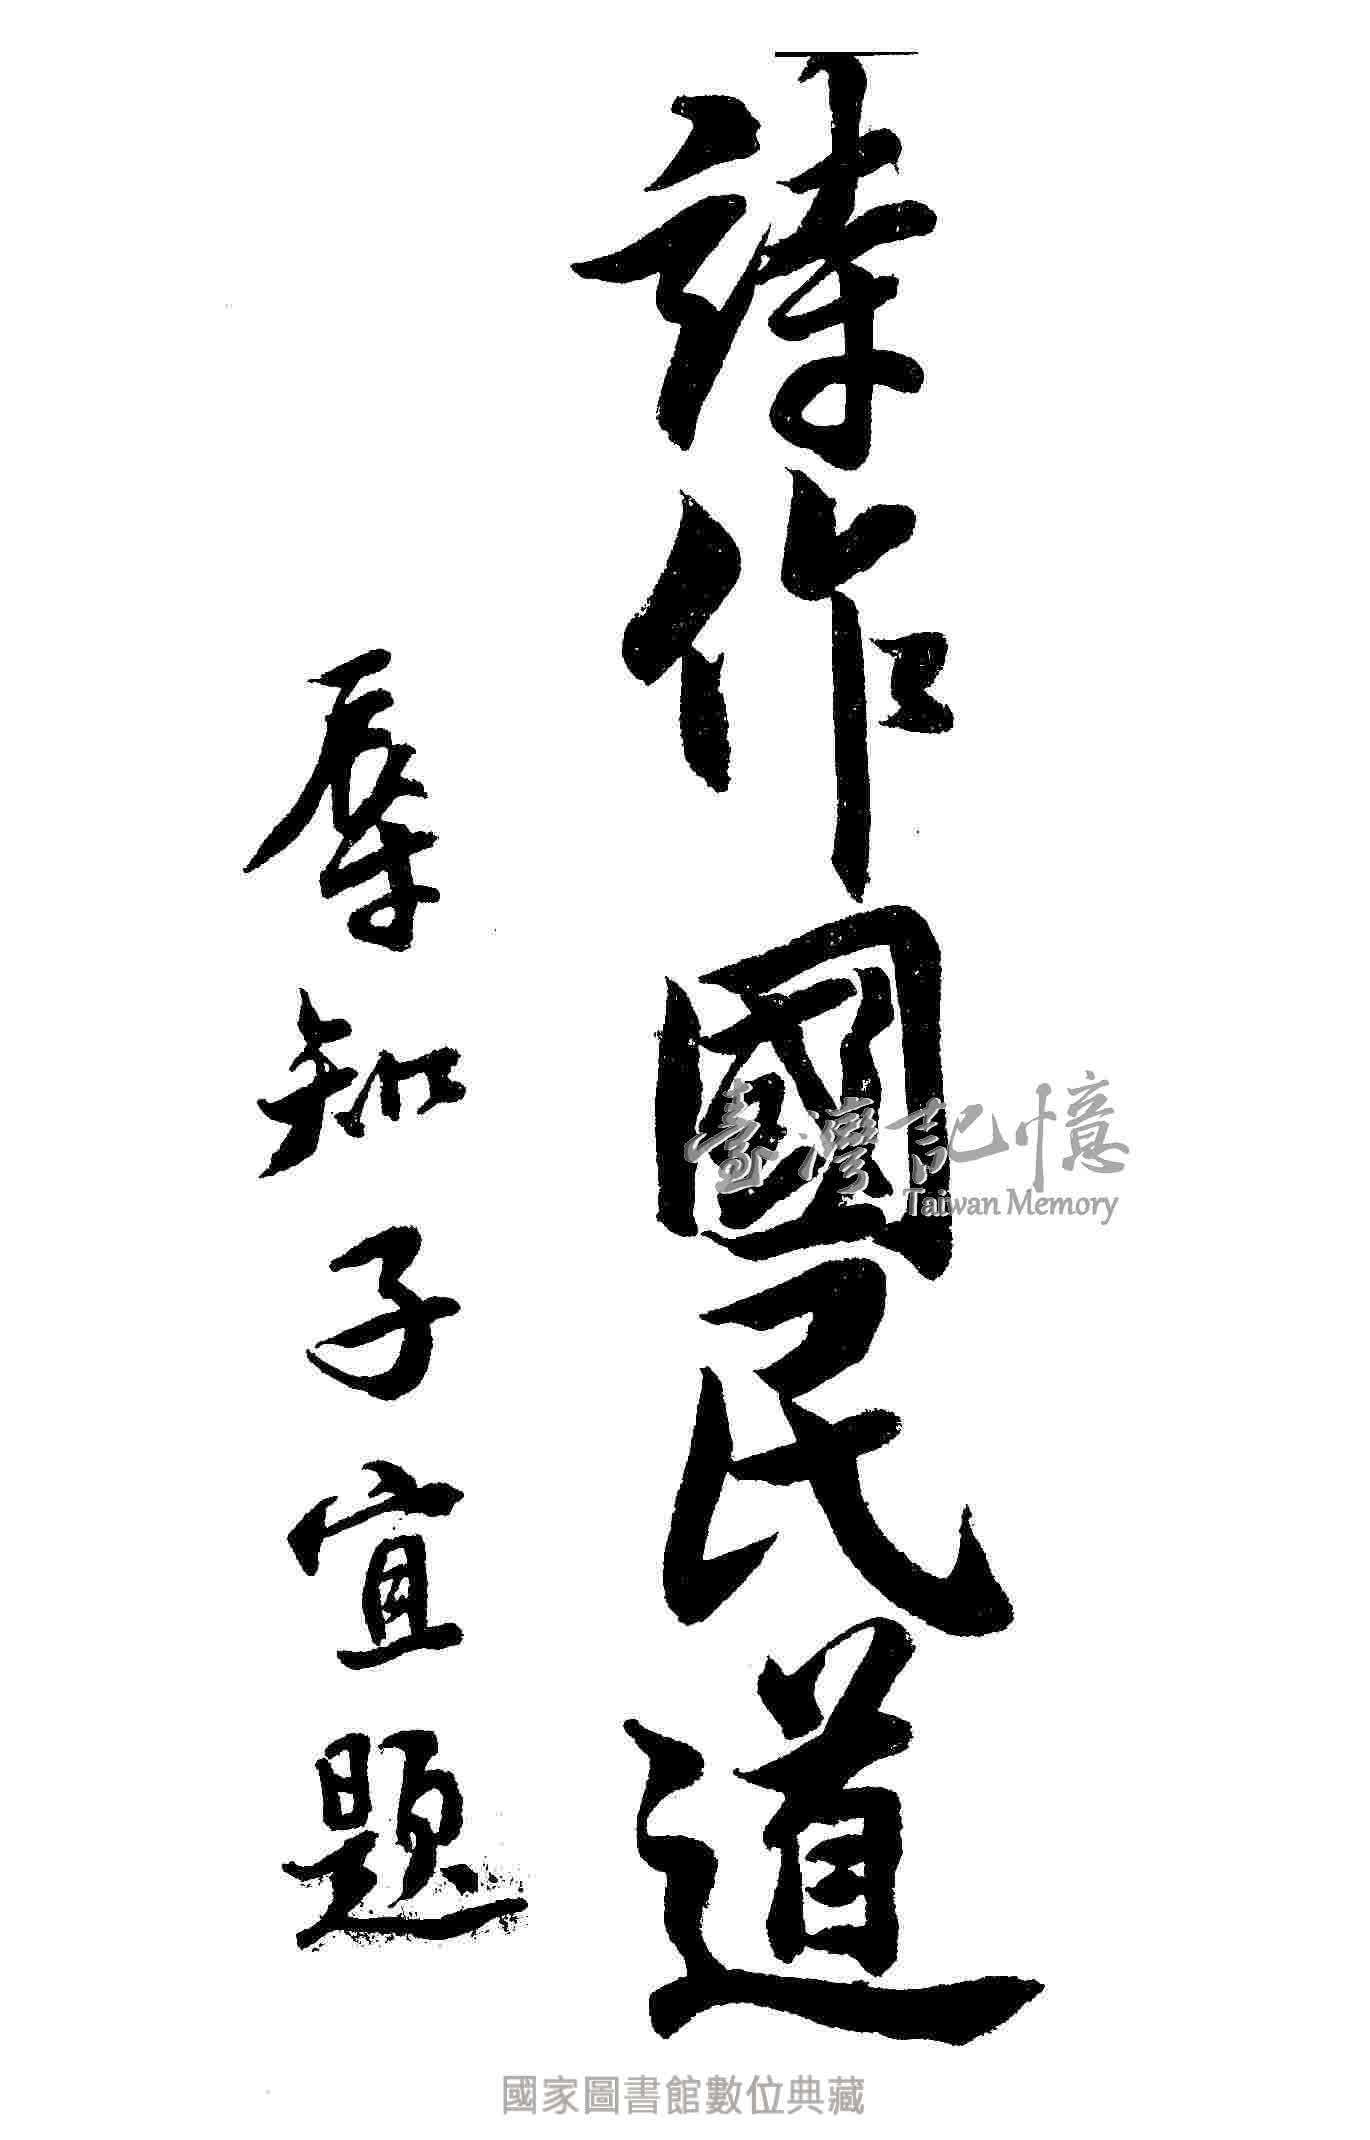 詩作國民道
辱知子宜題
臺灣記憶
Taiwan Memory
國家圖書館數位典藏